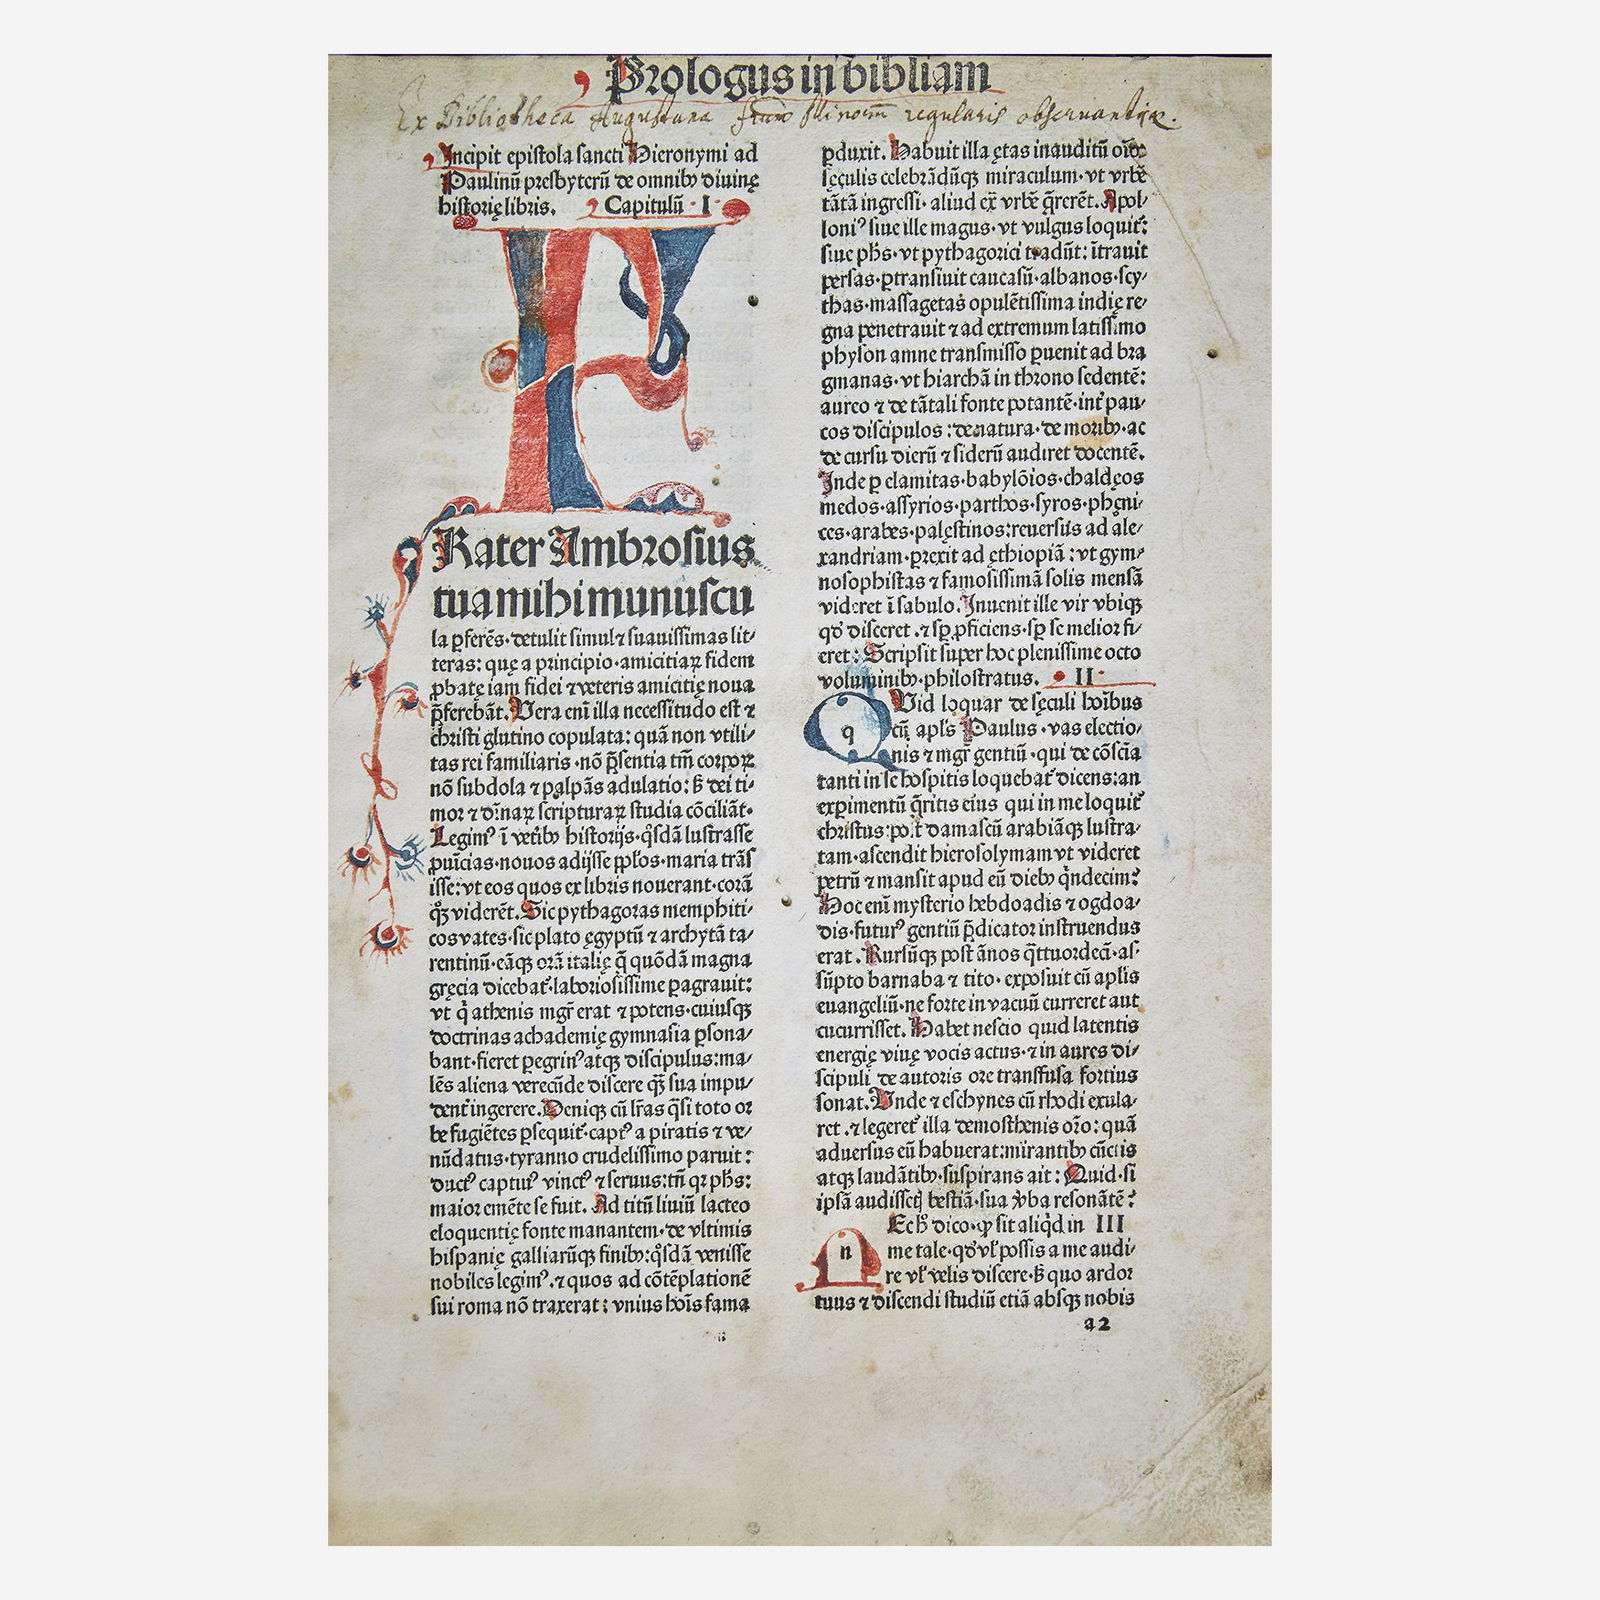 Prologus in bibliam
Ex Bibliotheca Augustana fratrũ Minorum regularis observantiæ.
Incipit epistola sancti Hieronymi ad
Paulinũ presbyterũ de omnibꝰ diuinę
historię libris. Capitulũ · I ·
F
Rater Ambrosius
tua mihi munuscu
la ꝑferẽs·detulit simul ⁊ suauissimas lit/
teras: quę a principio·amicitiaꝝ fidem
ꝓbatę iam fidei ⁊ veteris amicitię noua
p̃ferebãt. Vera eni illa necessitudo est ⁊
christi glutino copulata: quã non vtili/
tas rei familiaris·nõ p̃sentia tm̃ corpoꝝ
nõ subdola ⁊ palpãs adulatio: sꝫ dei ti/
mor ⁊ diuinaꝝ scripturaꝝ studia cõciliãt.
Legimꝰ ĩ veteribꝰ historijs·q̃sdã lustrasse
ꝓuĩcias·nouos adijsse ppľos·maria trãs
isse: vt eos quos ex libris nouerant·corã
qͦꝫ viderẽt. Sic pythagoras memphiti/
cos vates·sic plato ęgyptũ ⁊ archytã ta/
rentinũ·eãqꝫ orã italię q̃ quõdã magna
gręcia dicebat᷑·laboriosissime ꝑagrauit:
vt qͥ athenis mgr̃ erat ⁊ potens·cuiusqꝫ
doctrinas achademię gymnasia ꝑsona/
bant·fieret ꝑegrinꝰ atqꝫ discipulus: ma/
lẽs aliena verecũde discere qͣꝫ sua impu/
dent᷑ ingerere. Deniqꝫ cũ lr̃as q̃si toto or
be fugiẽtes ꝑsequit᷑·captꝰ a piratis ⁊ ve/
nũdatus·tyranno crudelissimo paruit:
ductꝰ captiuꝰ vinctꝰ ⁊ seruus: tñ qꝛ phs:
maior emẽte se fuit. Ad titũ liuiũ lacteo
eloquentię fonte manantem·de vltimis
hispanię galliarũqꝫ finibꝰ: q̃sdã venisse
nobiles legimꝰ·⁊ quos ad cõtẽplationẽ
sui roma nõ traxerat: vnius hoĩs fama
ꝑduxit. Habuit illa ętas inauditũ oĩbꝰ
sęculis celebrãdũqꝫ miraculum·vt vrbẽ
tãtã ingressi·aliud ex̃ vrbẽ q̃rerẽt. Apol/
loniꝰ siue ille magus·vt vulgus loquit᷑:
siue phs·vt pythagorici tradũt: ĩtrauit
persas·ꝑtransiuit caucasũ·albanos·scy/
thas·massagetas opulẽtissima indię re/
gna penetrauit ⁊ ad extremum latissimo
physon amne transmisso ꝑuenit ad bra
gmanas·vt hiarchã in throno sedentẽ:
aureo ⁊ de tãtali fonte potantẽ·int᷑ pau/
cos discipulos: de natura·de moribꝰ·ac
de cursu dierũ ⁊ siderũ audiret docentẽ.
Inde ꝑ elamitas·babylõios·chaldęos
medos·assyrios·parthos·syros·phęni/
ces·arabes·palęstinos: reuersus ad ale/
xandriam·ꝑrexit ad ęthiopiã: vt gym/
nosophistas ⁊ famosissimã solis mensã
videret ĩ sabulo. Inuenit ille vir vbiqꝫ
qď disceret·⁊ sꝑ ꝓficiens·sꝑ se melior fi/
eret: Scripsit super hoc plenissime octo
voluminibꝰ·philostratus. · II ·
QVid loquar de sęculi hoĩbus
q
cũ apľs Paulus·vas electio/
nis ⁊ mgr̃ gentiũ·qui de cõscĩa
tanti in se hospitis loquebat᷑ dicens: an
experimentũ q̃ritis eius qui in me loquit᷑
christus: post damascũ arabiãqꝫ lustra/
tam·ascendit hierosolymam vt videret
petrũ ⁊ mansit apud eũ diebꝰ qͥndecim:
Hoc eni mysterio hebdoadis ⁊ ogdoa/
dis·futurꝰ gentiũ p̃dicator instruendus
erat. Rursũqꝫ post ãnos q̃ttuordecã·as/
sũpto barnaba ⁊ tito·exposuit cũ apľis
euangeliũ·ne forte in vacuũ curreret aut
cucurrisset. Habet nescio quid latentis
energię viuę vocis actus·⁊ in aures di/
scipuli de autoris ore transfusa fortius
sonat. Vnde ⁊ eschynes cũ rhodi exula/
ret·⁊ legeret᷑ illa demosthenis orõ: quã
aduersus eũ habuerat: mirantibꝰ cũctis
atqꝫ laudãtibꝰ·suspirans ait: Quid·si
ipsã audissetꝭ bestiã·sua v̾ba resonãtẽ?
NEcħ dico·ꝙ sit aliqͥd in III
n
me tale·qď vľ possis a me audi/
re vľ velis discere·sꝫ quo ardor
tuus ⁊ discendi studiũ etiã absqꝫ nobis
a2